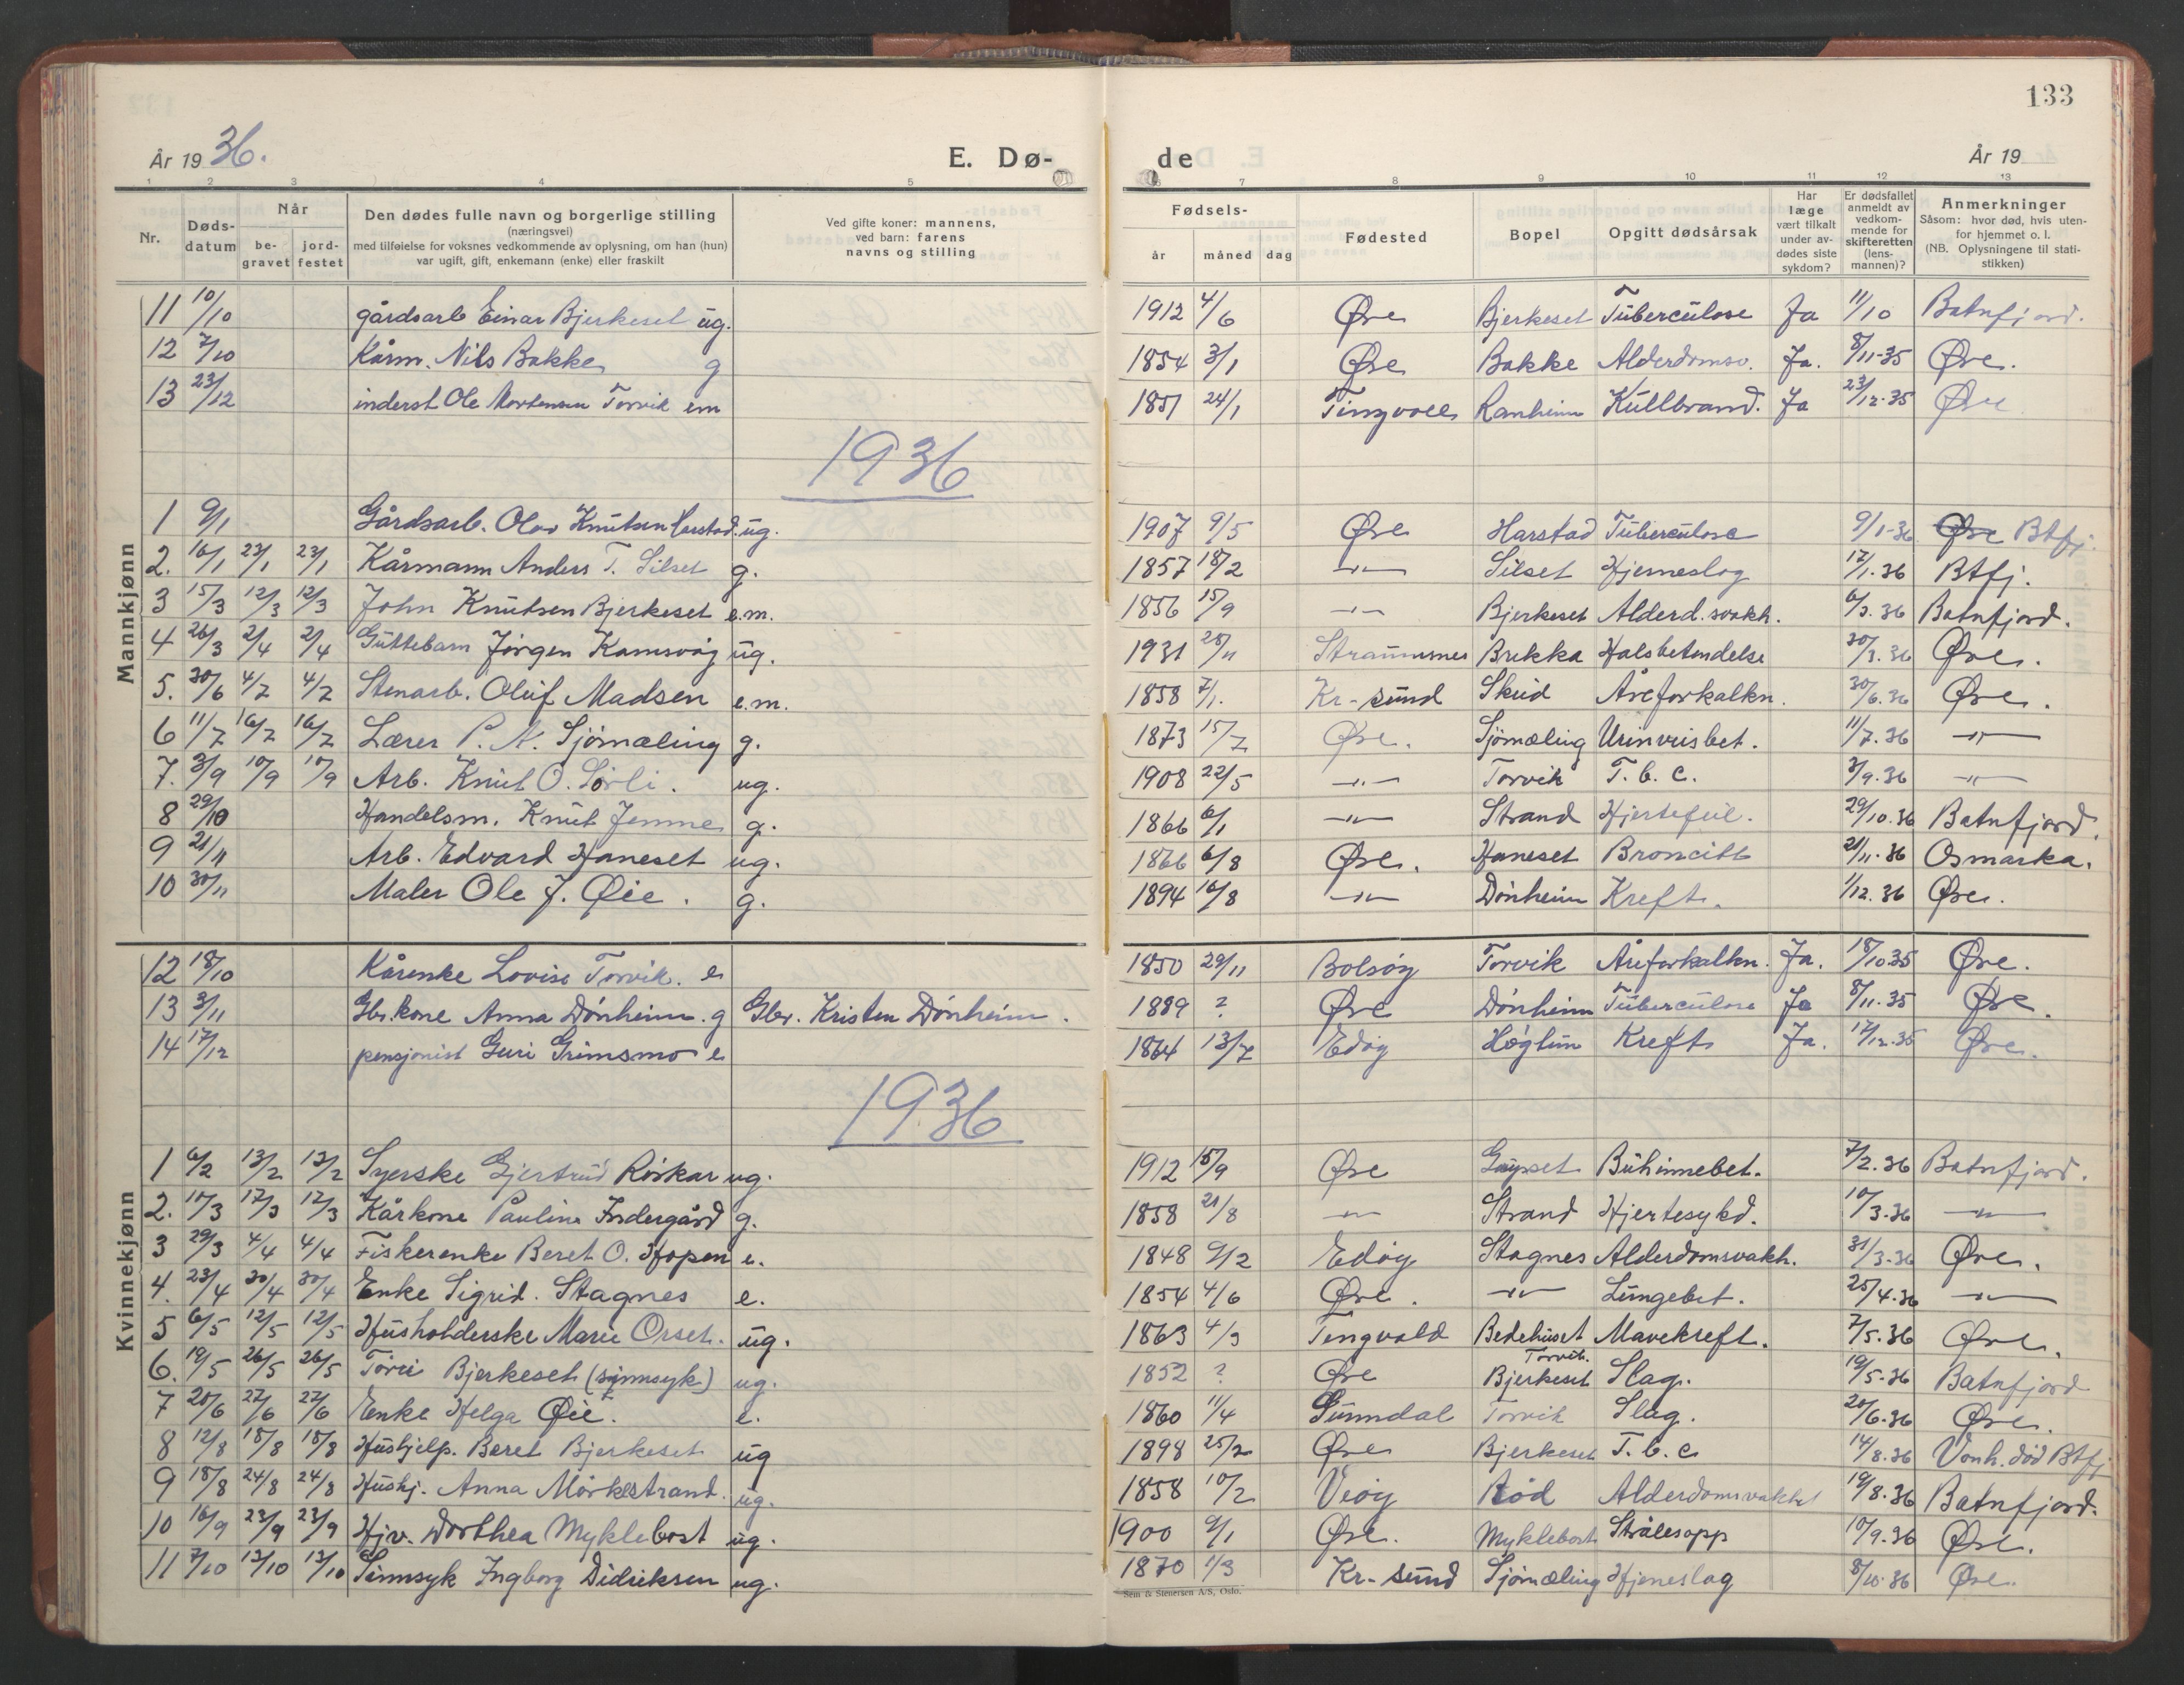 133
År 1936.
E. Dø-
de
År 19
1 2 3 4 5
6 7 8 9 10 11 12 13
Nr.
Døds-
datum
Når
be-
gravet
jord-
festet
Den dødes fulle navn og borgerlige stilling
(næringsvei)
med tilføielse for voksnes vedkommende av oplysning, om han (hun)
var ugift, gift, enkemann (enke) eller fraskilt
Ved gifte koner: mannens,
ved barn: farens
navns og stilling
Fødsels-
år måned dag
Fødested
Bopel
Opgitt dødsårsak
Har
læge
vært tilkalt
under av-
dødes siste
sykdom?
Er dødsfallet
anmeldt av
vedkom-
mende for
skifteretten
(lens-
mannen)?
Anmerkninger
Såsom: hvor død, hvis uten-
for hjemmet o. l.
(NB. Oplysningene til stati-
stikken)
Mannkjønn
11 10/10 gårdsarb Einar Bjerkeset ug. 1912 4/6 Øre Bjerkeset Tuberculose Ja 11/10 Batnfjord.
12 7/10 Kårm. Nils Bakke g 1854 3/1 Øre Bakke Alderdomsv. Ja. 8/11-35 Øre.
13 23/12 inderst Ole Mortensen Torvik em 1851 24/1 Tingvoll Ranheim Kullbrand. Ja 23/12-35 Øre
1936
1 9/1 Gårdsarb. Olav Knutsen Harstad. ug. 1907 9/5 Øre Harstad Tuberculose 9/1-36 Øre Btfj.
2. 16/1 23/1 23/1 Kårmann Anders T. Silset g. 1857 18/2 -"- Silset Hjerneslag 17/1.36 Btfj.
3 15/3 12/3 12/3 John Knutsen Bjerkeset e.m. 1856 15/9 -"- Bjerkeset Alderd.svakh. 6/3.36 Batnfjord.
4 26/3 2/4 2/4 Guttebarn Jörgen Kamsvåg ug. 1931 28/11 Straumsnes Brekka Halsbetendelse 30/3.36 Øre.
5. 30/6 4/7 4/7 Stenarb. Oluf Madsen e.m. 1858 7/1. Kr-sund Skud Åreforkalkn. 30/6.36 Øre.
6 11/7 16/7 16/7 Lærer P. N. Sjömæling g. 1873 15/7 Øre. Sjömæling Urinveisbet. 11/7.36 -"-
7. 3/9 10/9 10/9 Arb. Knut O. Sörli. ug. 1908 22/5 -"- Torvik T.b.c. 3/9.36 -"-
8 29/10 Handelsm. Knut Jemne g. 1866 6/1 -"- Strand Hjertefeil. 29/10.36 Batnfjord.
9 21/11 Arb. Edvard Haneset ug. 1866 6/8 Øre. Haneset Broncitt 21/11.36 Osmarka.
10 30/11 Maler Ole J. Øie. g. 1894 16/8 -"- Dönheim Kreft. 1/12.36 Øre.
Kvinnekjønn
12 18/10 Kårenke Lovise Torvik. e 1850 29/11 Bolsöy Torvik Åreforkalkn. Ja. 18/10 35 Øre.
13 3/11 Gbr.kone Anna Dönheim. g Gbr. Kristen Dönheim. 1889 ? Øre Dönheim Tuberculose Ja 8/11.35 Øre.
14 17/12 pensjonist Guri Grimsmo e 1864 13/7 Edöy Höglim Kreft Ja. 17/12.35 Øre.
1936
1 6/2 13/2 13/2 Syerske Gjertrud Röskar ug. 1912 15/9 Øre Buhinnebet. 7/2.36 Batnfjord.
2. 10/3 17/3 17/3 Kårkone Pauline Indergård g. 1858 21/8 -"- Strand Hjertesykd. 10/3.36 -"-
3 29/3 4/4 4/4 Fiskerenke Beret O. Hopen e. 1848 9/12 Edöy Stagnes Alderdomsvakh. 31/3.36 Øre.
4. 23/4 30/4 30/4 Enke Sigrid. Stagnes e. 1854 4/6 Øre. -"- Lungebet. 25/4.36 -"-
5 6/5 12/5 12/5 Husholderske Marie Orset. ug. 1863 4/3 Tingvold Bedehuset Mavekreft. 7/5.36 Øre.
Torvik.
6. 19/5 26/5 26/5 Bjerkeset (sinnsyk) ug. 1852 ? Øre Bjerkeset Slag. 19/5-36 Batnfjord
7 20/6 27/6 27/6 Enke Helga Øie. e. 1860 11/4 Sunndal Torvik Slag. 20/6.36 Øre.
8 12/8 18/8 18/8 Hushjelp. Beret Bjerkeset ug 1898 25/2 Øre Bjerkeset T.b.c 14/8.36 Vonh. död Btfj
9 18/8 24/8 24/8 Hushj. Anna Mörkestrand. ug. 1858 10/2 Veöy Röd Alderdomsvakhet 19/8.36 Batnfjord.
10 16/9 23/9 23/9 Hjv. Dorthea Myklebost ug. 1900 9/1 Øre. Myklebost Strålesopp 10/9.36 Øre.
11 7/10 13/10 13/10 Sinnsyk Ingborg Didriksen ug. 1870 1/3 Kr-sund Sjömæling Hjerneslag 8/10.36 Øre.
Sem & Stenersen A/S, Oslo.